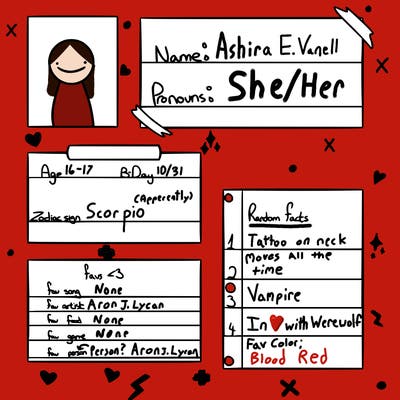 Name: Ashira E. Vanell
Pronouns: She/Her
Age 16-17 B-Day 10/31
(Appercatly)
Zodiac sign Scorpio
Favs <3
fav song None
fav artist Aron J. Lycan
fav food None
fav game None
fav person Person? Aron J. Lycan
Random facts
1 Tattoo on neck
2 Moves all the time
3 Vampire
4 In ❤ with Werewolf
Fav Color;
Blood Red